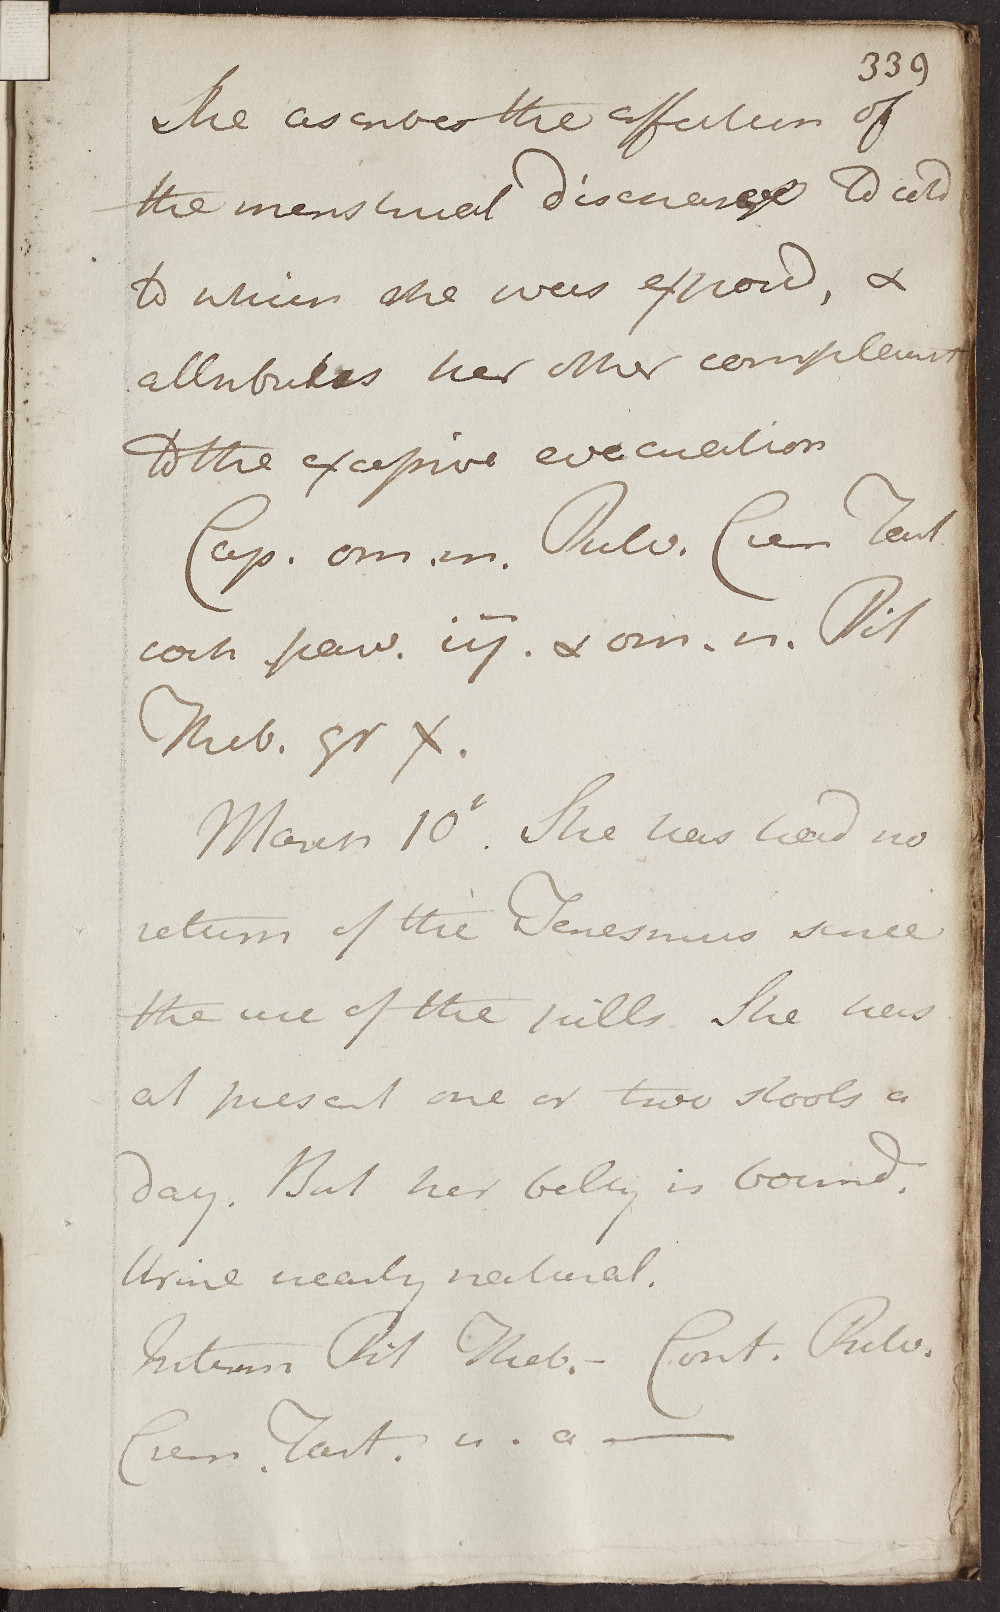 339
She ascribes the affection of
the menstrual discharge to cold
to which she was expos'd, &
attributes her other complaint
to the excessive evacuation
Cap. om. m. Pulv. Crem Tart
coch parv. iij. & om. n. Pil
Theb. gr X.
March 10t. She has had no
return of the Tenesmus since
the use of the pills. She has
at present one or two stools a
day. But her belly is bound.
Urine nearly natural.
Interm Pil Theb. - Cont. Pulv.
Crem. Tart. u. a